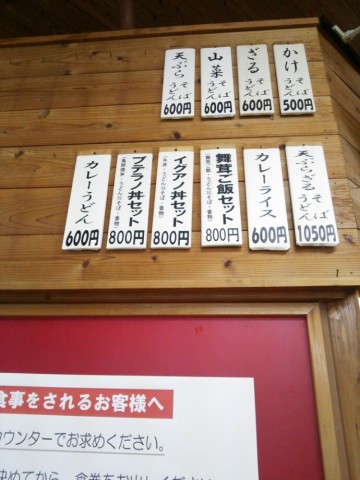 かけ そば うどん 500円
ざる そば うどん 600円
山菜 そば うどん 600円
天ぷら そば うどん 600円
天ぷらざる そば うどん 1050円
カレーライス 600円
舞茸ご飯セット 800円
イグアノ丼セット 800円
プテラノ丼セット 800円
カレーうどん 600円
食事をされるお客様へ
ウンターでお求めください。